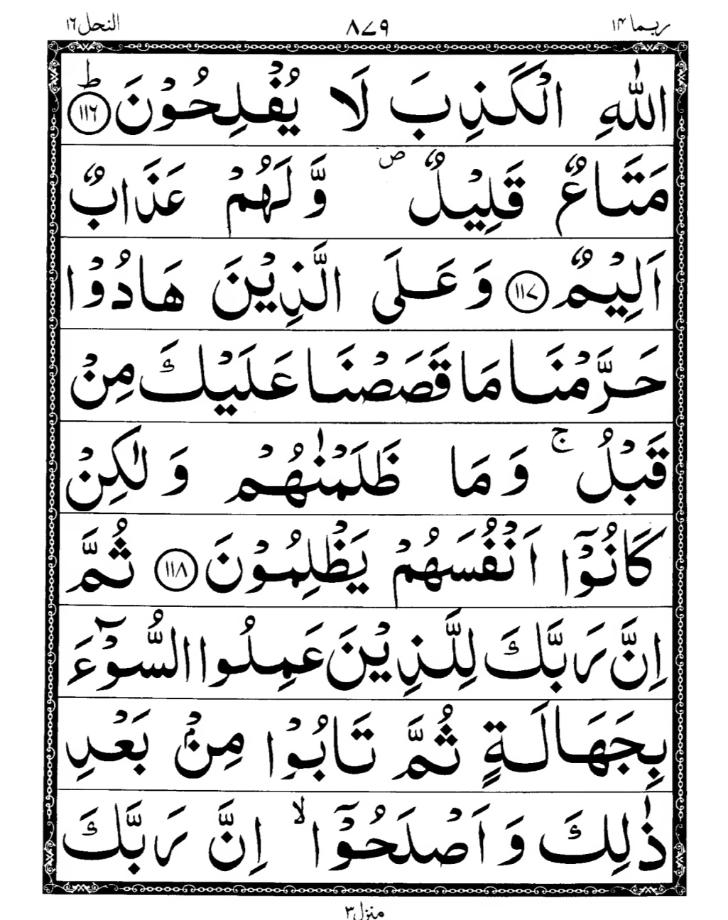 ربما ١٤ ٨٧٩ النحل ١٦
اللّٰهِ الْكَذِبَ لَا يُفْلِحُوْنَ ؕ ﴿١١٦﴾
مَتَاعٌ قَلِيْلٌ ۪ وَّ لَهُمْ عَذَابٌ
اَلِيْمٌ ﴿١١٧﴾ وَ عَلَى الَّذِيْنَ هَادُوْا
حَرَّمْنَا مَا قَصَصْنَا عَلَيْكَ مِنْ
قَبْلُ ۚ وَ مَا ظَلَمْنٰهُمْ وَ لٰكِنْ
كَانُوْٓا اَنْفُسَهُمْ يَظْلِمُوْنَ ﴿١١٨﴾ ثُمَّ
اِنَّ رَبَّكَ لِلَّذِيْنَ عَمِلُوا السُّوْٓءَ
بِجَهَالَةٍ ثُمَّ تَابُوْا مِنْۢ بَعْدِ
ذٰلِكَ وَ اَصْلَحُوْٓا ۙ اِنَّ رَبَّكَ
منزل ٣